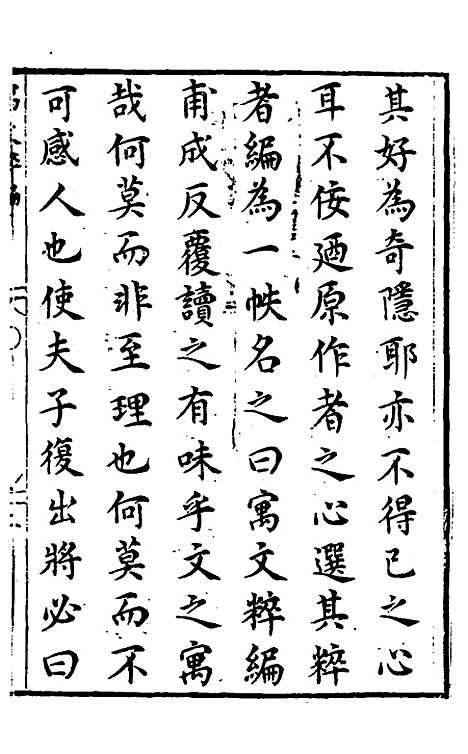 其好為奇隱耶亦不得已之心
耳不佞廼原作者之心選其粹
者編為一帙名之曰寓文粹編
甫成反覆讀之有味乎文之寓
哉何莫而非至理也何莫而不
可感人也使夫子復出將必曰